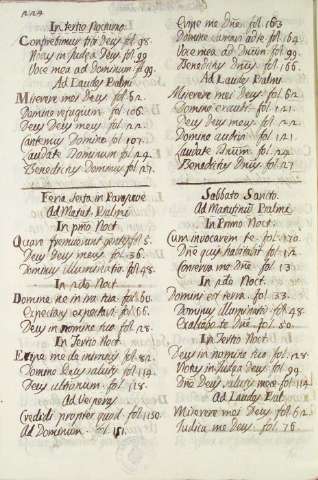 224
In tertio Nocturno.
Confitebimur tibi Deus fol. 98.
Notus in Judea Deus fol. 99
Voce mea ad Dominum fol. 99.
Ad Laudes Psalmi
Miserere mei Deus fol. 62.
Domine refugium fol. 106.
Deus Deus meus fol. 22
Cantemus Domino fol. 107.
Laudate Dominum fol. 24.
Benedictus Dominus fol. 27.
Feria Sexta in Parasceve
Ad Matut. Psalmi
In pri͂o Noct.
Quare fremuerunt gentes fol 5.
Deus Deus meus fol. 36.
Dominus illuminatio fol. 48.
In 2do Noct.
Domine ne in ira tua fol. 60.
Expectans expectavi fol. 66.
Deus in nomine tuo fol. 78.
In Tertio Noct.
Eripe me de inimicis fol. 82.
Domine Deus salutis fol. 119.
Deus ultionum fol. 118.
Ad Vesperas
Credidi propter quod fol. 150.
Ad Dominum fol. 151.
Eripe me Dñe fol. 163
Domine clamavi ad te fol. 164.
Voce mea ad Dñum fol. 99.
Benedictus Dñus fol. 166.
Ad Laudes Psalmi
Miserere mei Deus fol. 62
Domine exaudi fol. 121.
Deus Deus meus fol. 22
Domine audivi fol. 121.
Laudate Dñum fol. 24.
Benedictus Dñus fol. 27.
Sabbato Sancto.
Ad Matutinum Psalmi
In Primo Noct.
Cum invocarem te fol. 170.
Dñe quis habitabit fol. 12
Conserva me Dñe fol. 13
In 2do Noct.
Domini est terra fol. 33.
Dominus illuminatio fol. 48
Exaltabo te Dñe fol. 50.
In Tertio Noct
Deus in nomine tuo fol. 78.
Notus in Judea Deus fol. 99.
Dñe Deus salutis meae fol. 119
Ad Laudes Psal.
Miserere mei Deus fol. 62.
Judica me Deus fol. 76.